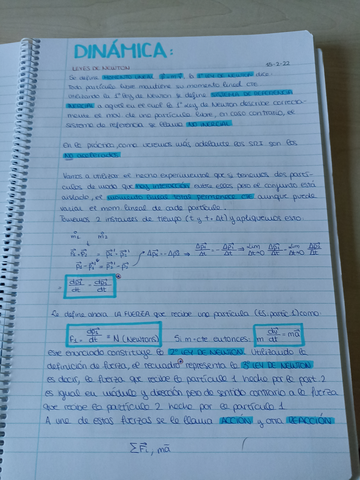 DINÁMICA:
LEYES DE NEWTON 15-2-22
Se define MOMENTO LINEAL, la 1ª LEY DE NEWTON dice
toda partícula libre mantiene su momento lineal cte.
Utilizando la 1ª ley de Newton se define SISTEMA DE REFERENCIA
INERCIAL a aquel en el cual la 1ª ley de Newton describe correcta-
mente el mov. de una partícula libre, en caso contrario, el
sistema de referencia se llama NO INERCIAL.
En la práctica, como veremos más adelante los SRI son los
NO acelerados.
Vamos a utilizar el hecho experimental que si tenemos dos partí-
culas de modo que hay interacción entre ellas pero el conjunto está
aislado, el momento lineal total permanece cte aunque puede
variar el mom. lineal de cada partícula.
Tomamos 2 instantes de tiempo (t y t+Δt) y apliquemos esto.
m₁ m₂
Se define ahora LA FUERZA que recibe una partícula (ej. partic. 1) como:
F₁ = dp₁/dt = N (Newtons) Si m = cte entonces: m dv/dt = ma
Ese enunciado constituye la 2ª LEY DE NEWTON. Utilizando la
definición de fuerza, el recuadro representa la 3ª LEY DE NEWTON
es decir, la fuerza que recibe la partícula 1 hecho por la part. 2
es igual en módulo y dirección pero de sentido contrario a la fuerza
que recibe la partícula 2 hecho por la partícula 1
A una de estas fuerzas se le llama ACCIÓN y otra REACCIÓN.